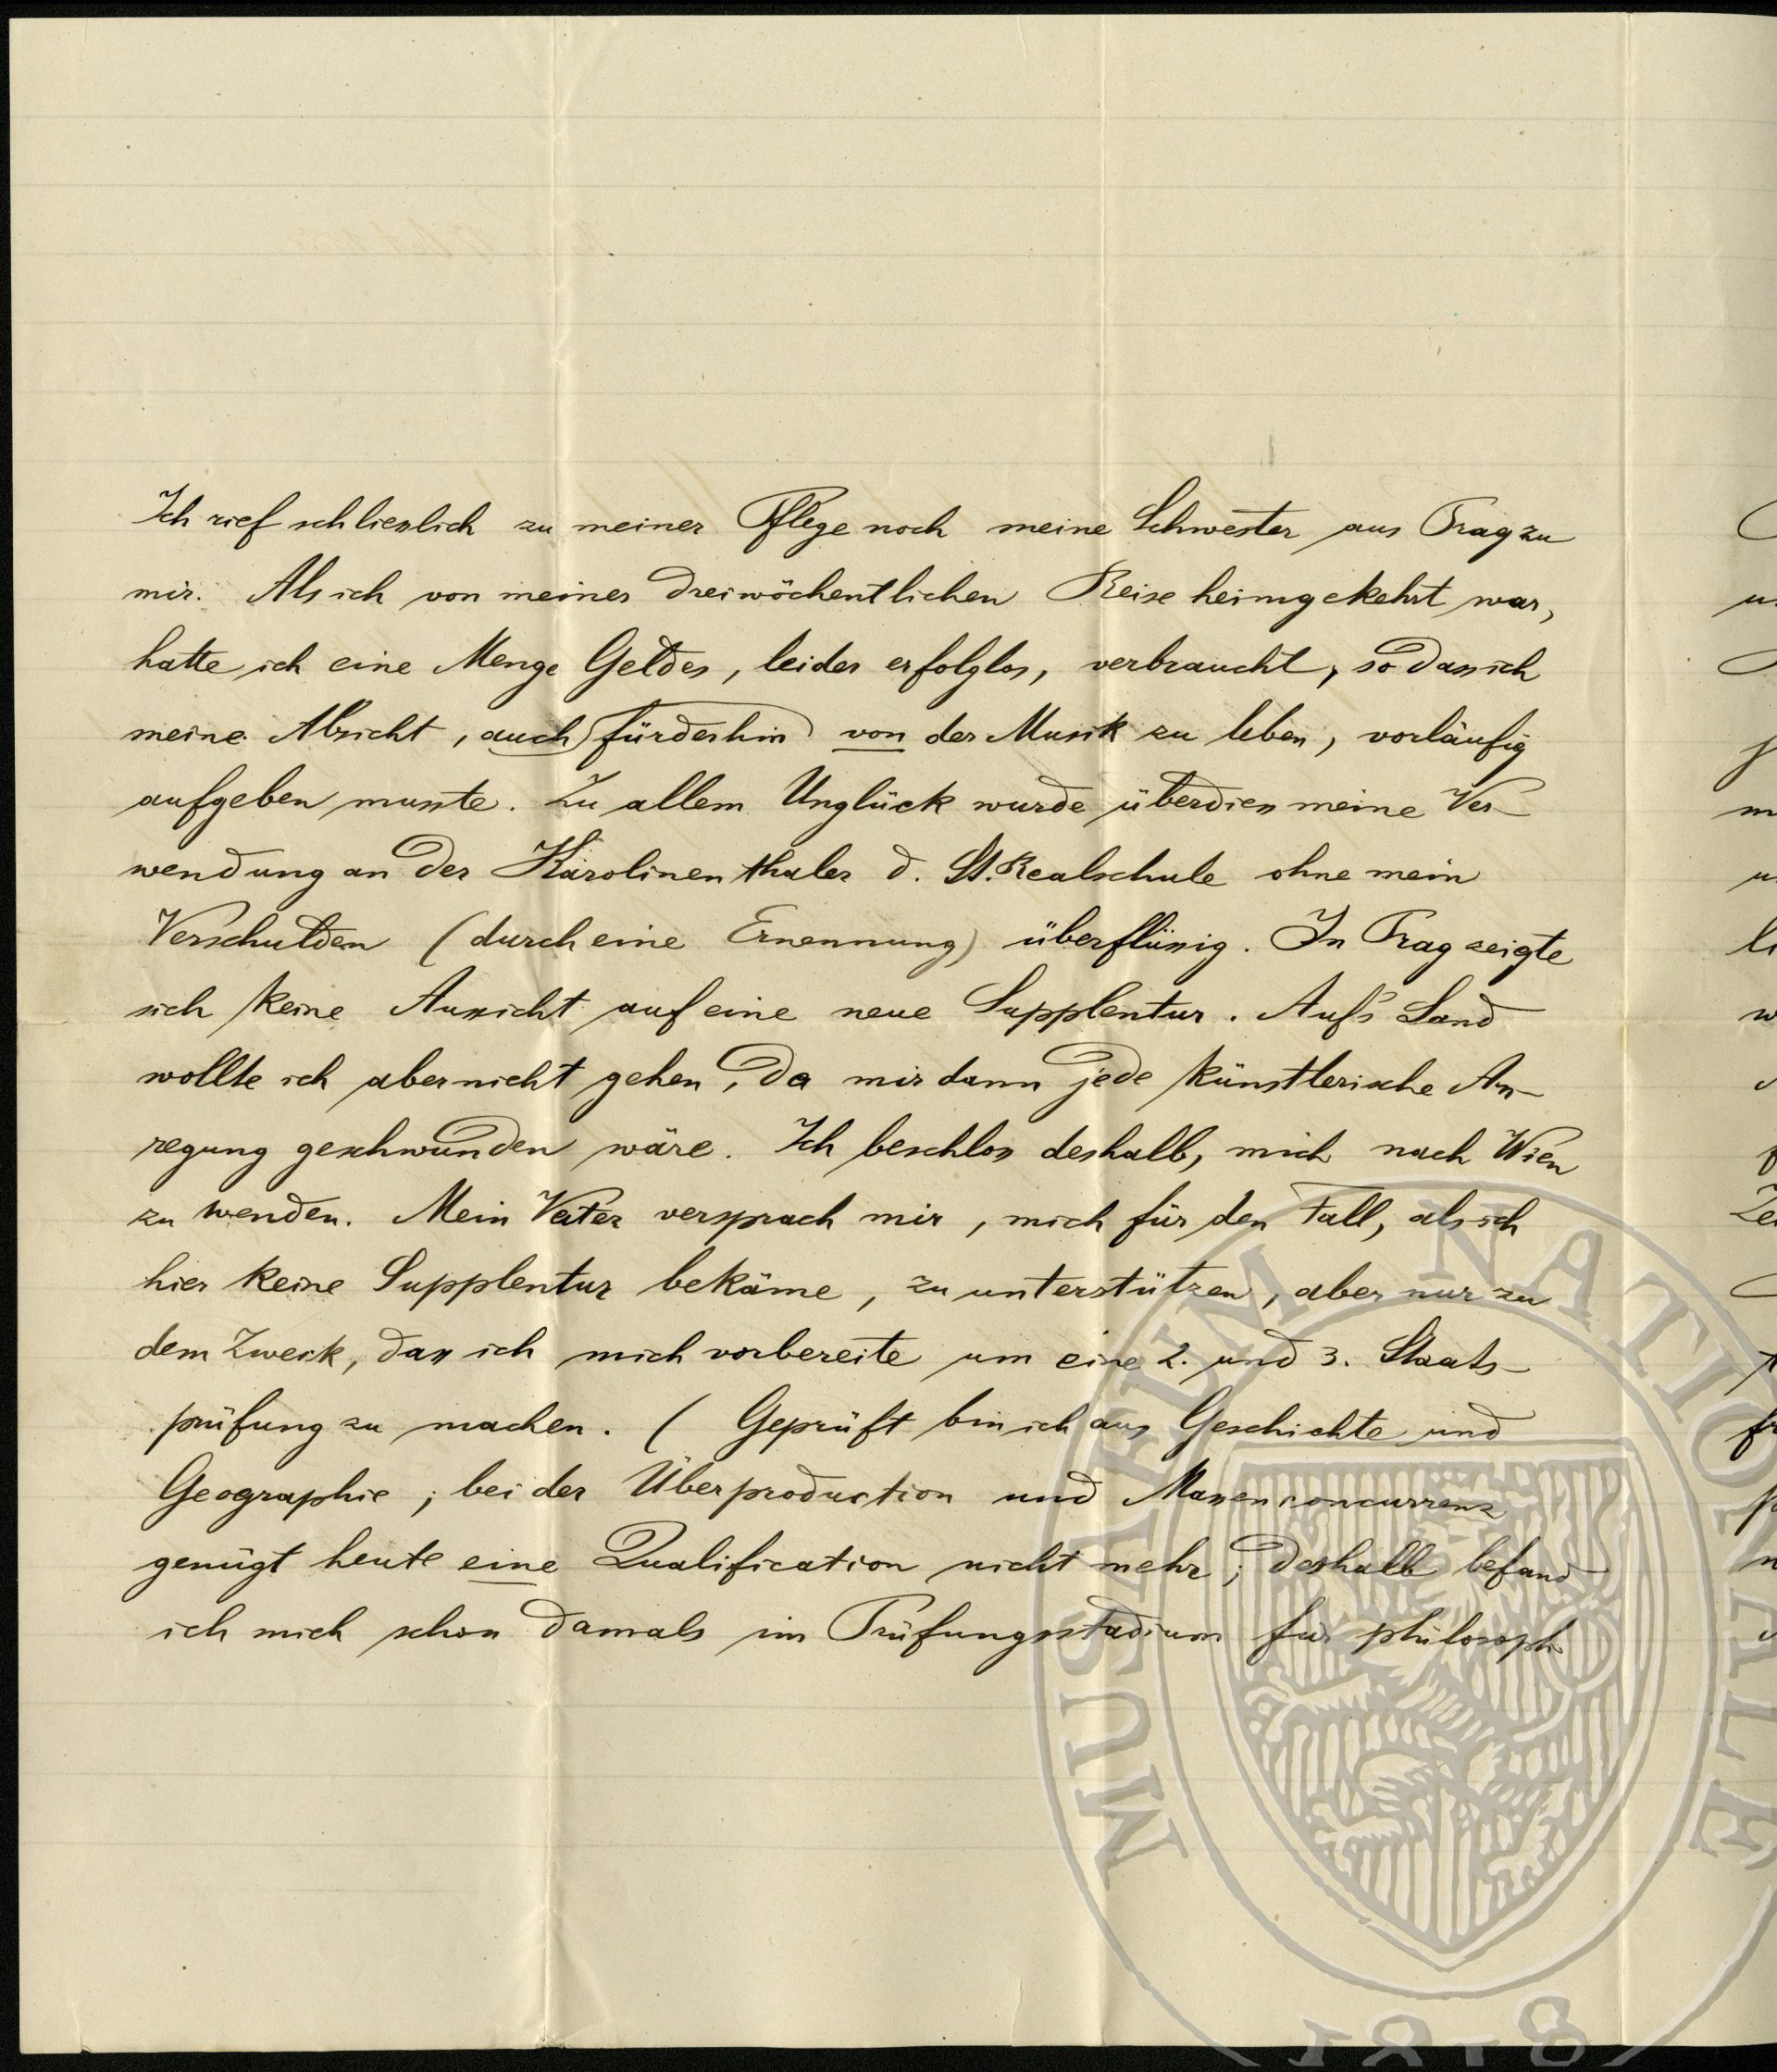 Ich rief schliesslich zu meiner Pflege noch meine Schwester aus Prag zu
mir. Als ich von meiner dreiwöchentlichen Reise heimgekehrt war,
hatte ich eine Menge Geldes, leider erfolglos, verbraucht, so dass ich
meine Absicht, auch fürderhin von der Musik zu leben, vorläufig
aufgeben musste. Zu allem Unglück wurde überdies meine Ver-
wendung an der Karolinenthaler d. St. Realschule ohne mein
Verschulden (durch eine Ernennung) überflüssig. In Prag zeigte
sich keine Aussicht auf eine neue Supplentur. Auf's Land
wollte ich aber nicht gehen, da mir dann jede künstlerische An-
regung geschwunden wäre. Ich beschloss deshalb, mich nach Wien
zu wenden. Mein Vater versprach mir, mich für den Fall, als ich
hier keine Supplentur bekäme, zu unterstützen, aber nur zu
dem Zweck, dass ich mich vorbereite um eine 2. und 3. Staats-
prüfung zu machen. (Geprüft bin ich aus Geschichte und
Geographie; bei der Überproduction und Massenconcurrenz
genügt heute eine Qualification nicht mehr; deshalb befand
ich mich schon damals im Prüfungsstadium für philosoph.
MUSAEUM NATIONALE
1818